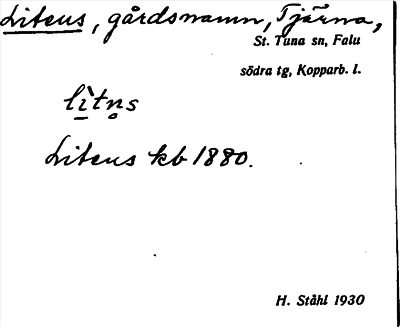 Litens, gårdsnamn, Tjärna,
St. Tuna sn, Falu
södra tg, Kopparb. l.
lì̠tn̥s
Litens kb 1880.
H. Ståhl 1930